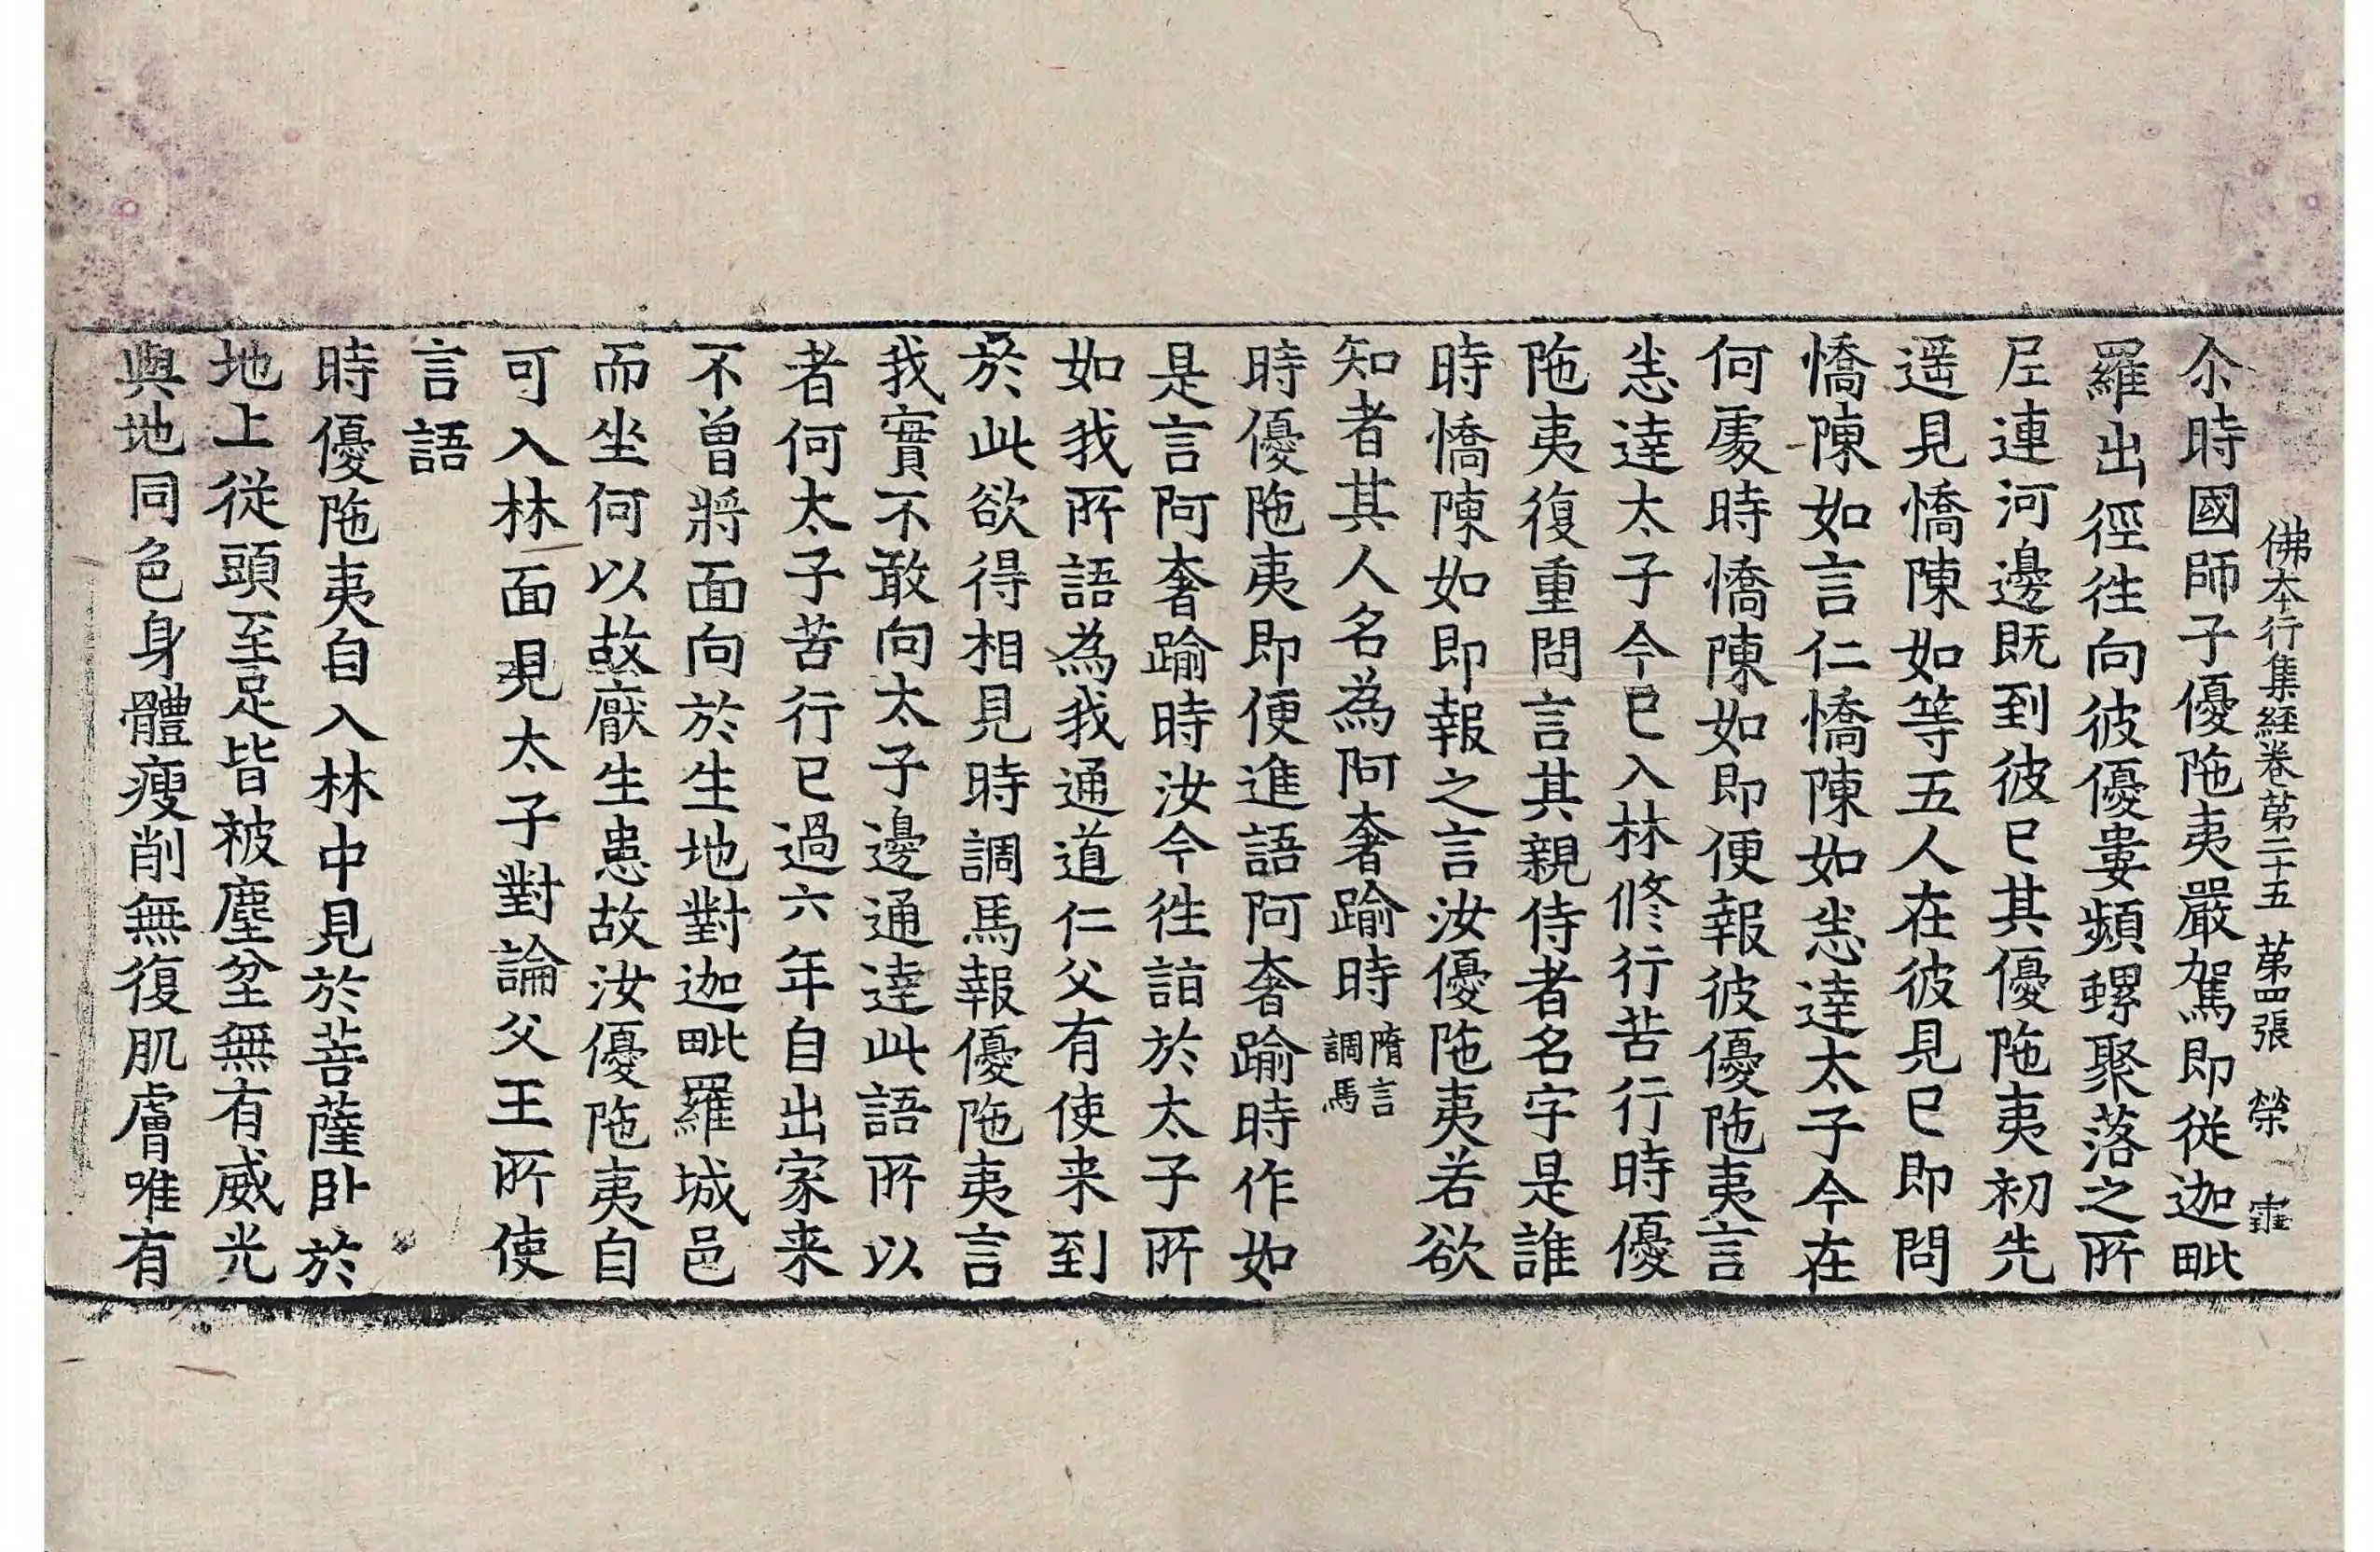 佛本行集経卷苐二十五 苐四張 榮
尒時國師子優陁夷嚴駕即従迦毗
羅出徑徃向彼優婁頻螺聚落之所
尼連河邊既到彼已其優陁夷初先
遥見憍陳如等五人在彼見已即問
憍陳如言仁憍陳如悉達太子今在
何處時憍陳如即便報彼優陁夷言
悉達太子今已入林修行苦行時優
陁夷復重問言其親侍者名字是誰
時憍陳如即報之言汝優陁夷若欲
知者其人名為阿奢踰時隋言調馬
時優陁夷即便進語阿奢踰時作如
是言阿奢踰時汝今徃詣於太子所
如我所語為我通道仁父有使来到
於此欲得相見時調馬報優陁夷言
我實不敢向太子邊通達此語所以
者何太子苦行已過六年自出家来
不曽將面向於生地對迦毗羅城邑
而坐何以故厭生患故汝優陁夷自
可入林面見太子對論父王所使
言語
時優陁夷自入林中見於菩薩卧於
地上従頭至足皆被塵坌無有威光
與地同色身體瘦削無復肌膚唯有